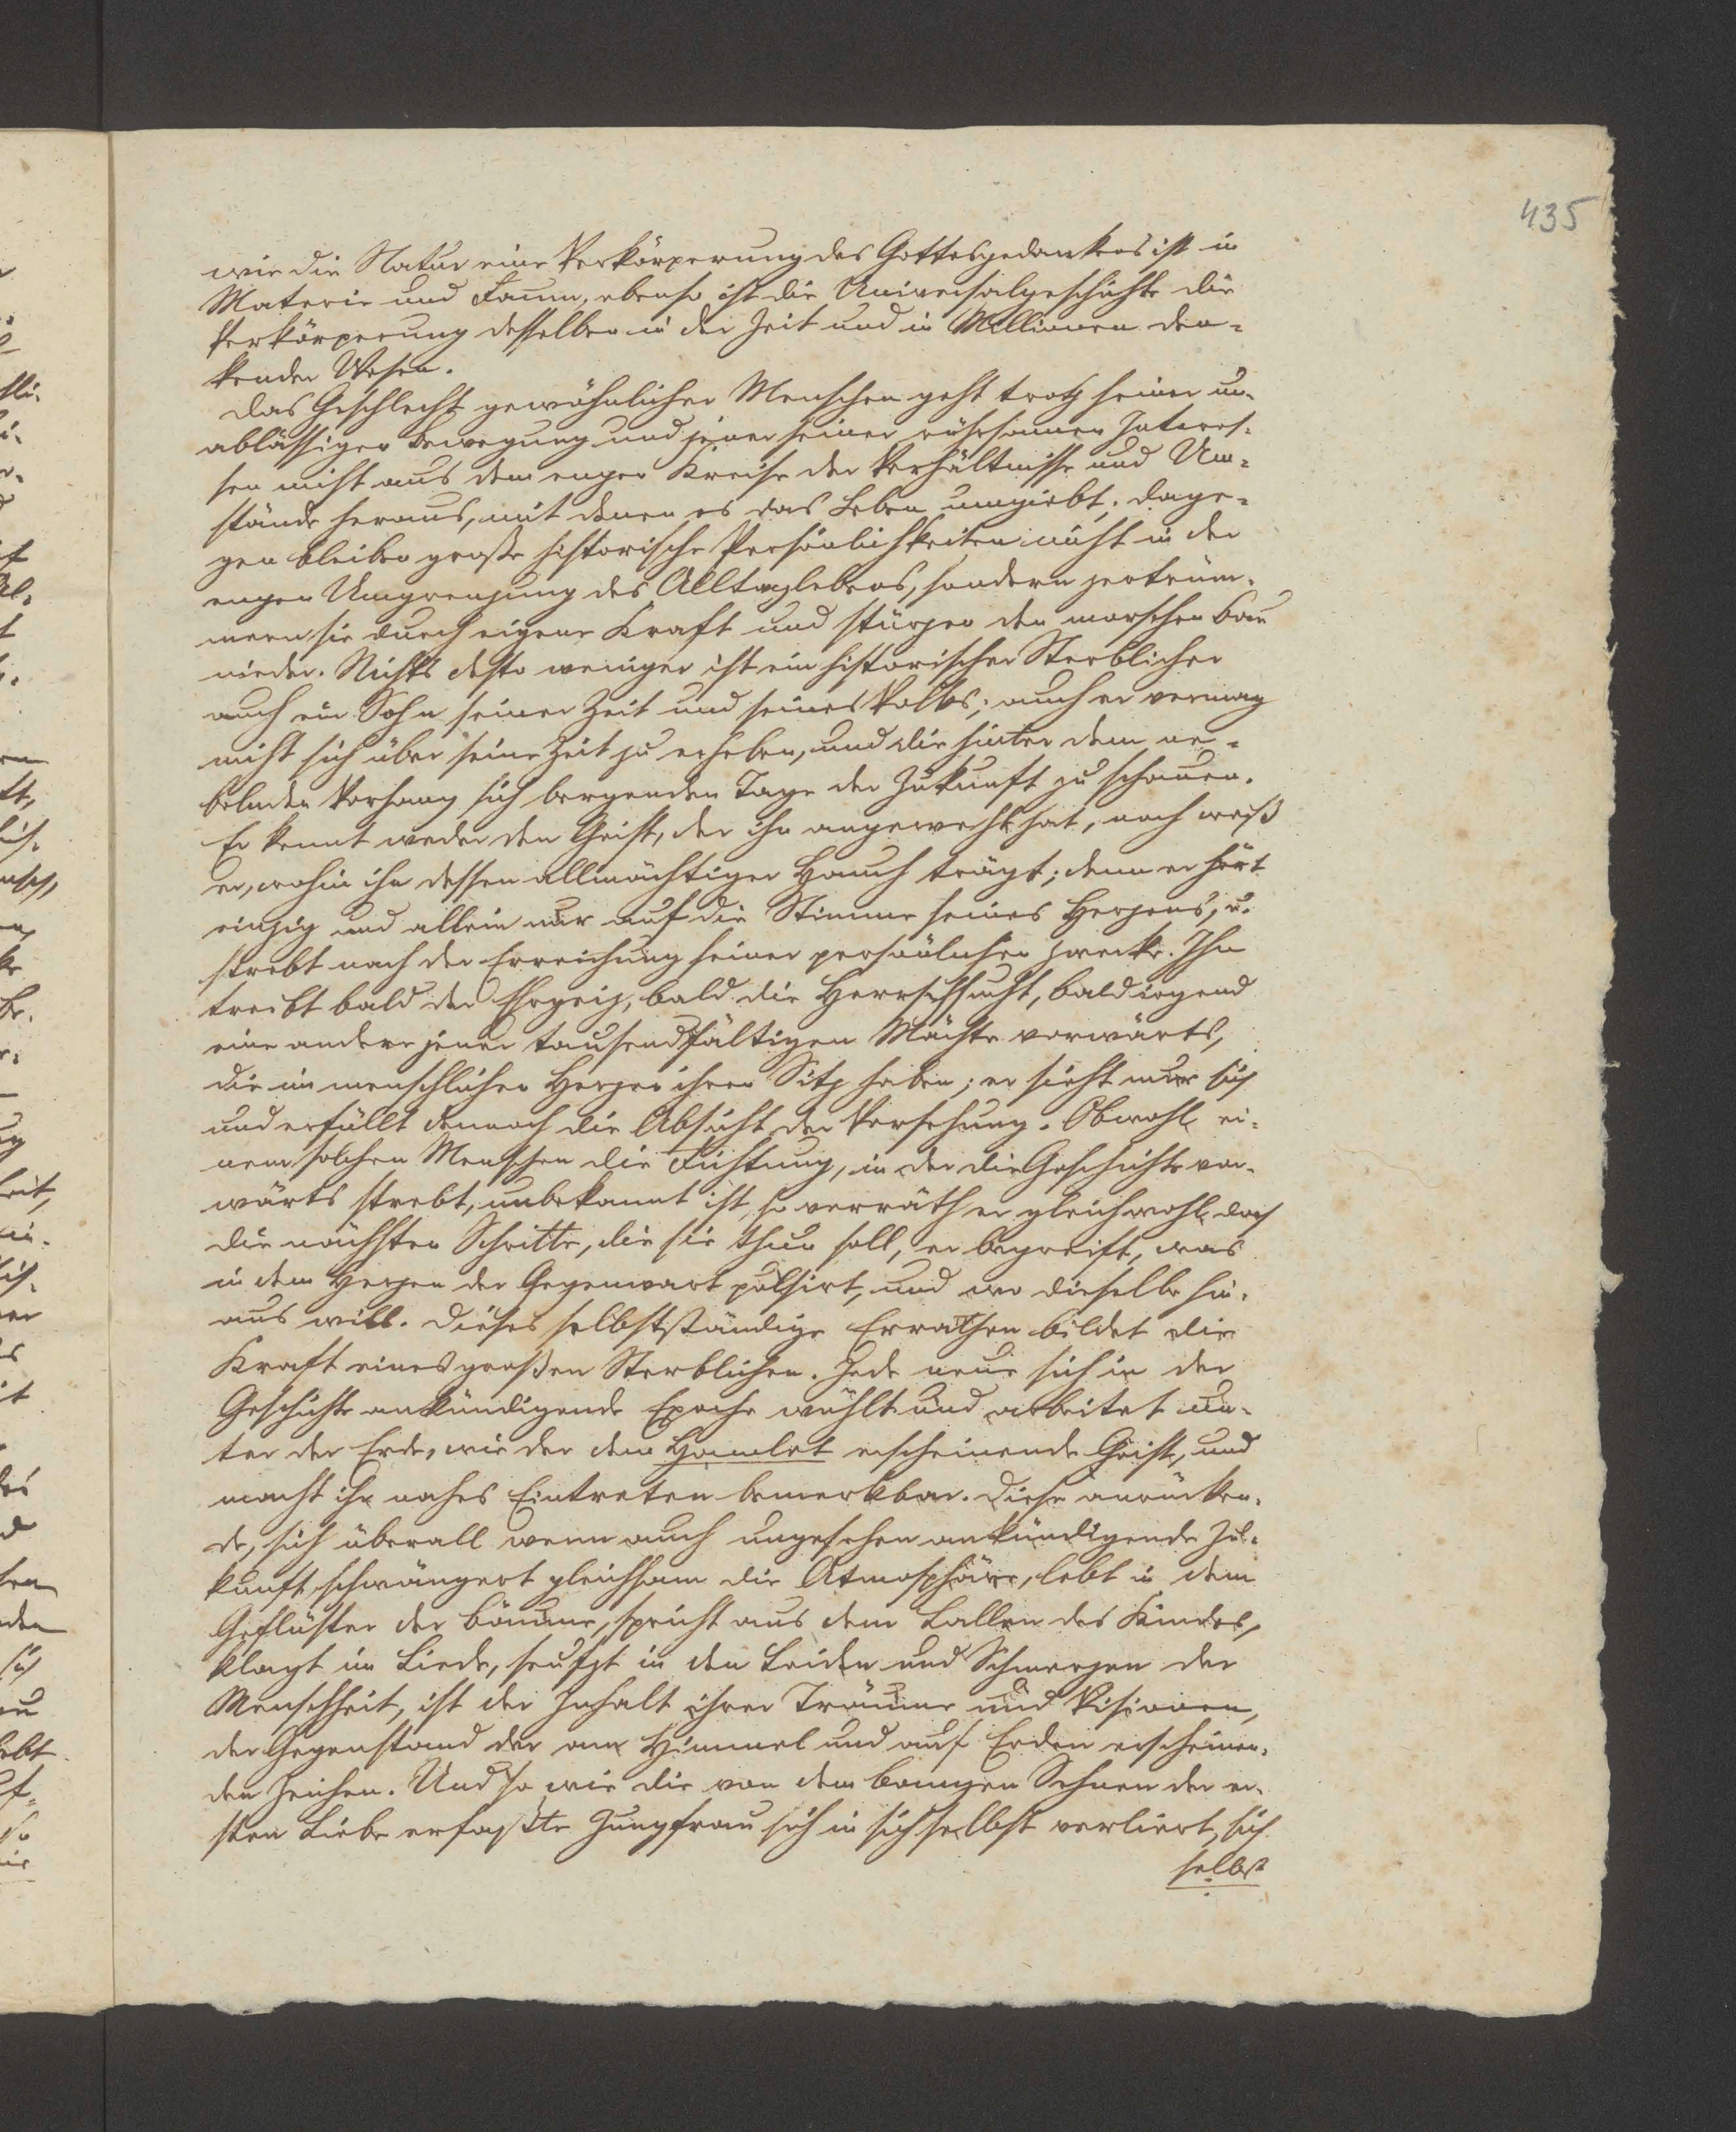 435
wie die Natur eine Verkörperung des Gottesgedankens ist in
Materie und Raum, ebenso ist die Universalgeschichte die
Verkörperung desselben in der Zeit und in Millionen den-
kender Wesen.
Das Geschlecht gewöhnlicher Menschen geht trotz seiner un-
ablässigen Bewegung und jener seiner rührsamen Interes-
sen nicht aus dem engen Kreise der Verhältnisse und Um-
stände heraus, mit denen es das Leben umgiebt; dage-
gen bleiben große historische Persönlichkeiten nicht in der
engen Umgrenzung des Alltagslebens, sondern zertrüm-
mern sie durch eigene Kraft und stürzen den morschen Bau
nieder. Nichts desto weniger ist ein historischer Sterblicher
auch ein Sohn seiner Zeit und seines Volks; auch er vermag
nicht sich über seine Zeit zu erheben, und die hinter dem ne-
belnden Vorhang sich bergenden Tage der Zukunft zu schauen.
Er kennt weder den Geist, der ihn angeweht hat, noch weiß
er, wohin ihn dessen allmächtiger Hauch trägt; denn er hört
einzig und allein nur auf die Stimme seines Herzens, u.
strebt nach der Erreichung seiner persönlichen Zwecke. Ihn
treibt bald der Ehrgeiz, bald die Herrschsucht, bald irgend
eine andere jener tausendfältigen Mächte vorwärts,
die im menschlichen Herzen ihren Sitz haben; er sieht nur sich
und erfüllt dennoch die Absicht der Vorsehung. Obwohl ei-
nem solchen Menschen die Richtung, in der die Geschichte vor-
wärts strebt, unbekannt ist, so verräth er gleichwohl doch
die nächsten Schritte, die sie thun soll, er begreift, was
in dem Herzen der Gegenwart pulsirt, und wo dieselbe hin-
aus will. Dieses selbstständige Errathen bildet die
Kraft eines großen Sterblichen. Jede neue sich in der
Geschichte ankündigende Epoche wühlt und arbeitet un-
ter der Erde, wie der dem Hamlet erscheinende Geist, und
macht ihr nahes Eintreten bemerkbar. Diese anrücken-
de, sich überall wenn auch ungesehen ankündigende Zu-
kunft, schwängert gleichsam die Atmosphäre, lebt in dem
Geflüster der Bäume, spricht aus dem Lallen des Kindes,
klagt im Liede, seufzt in den Leiden und Schmerzen der
Menschheit, ist der Inhalt ihrer Träume und Visionen,
der Gegenstand der am Himmel und auf Erden erscheinen-
den Zeichen. Und so wie die von dem bangen Sehnen der er-
sten Liebe erfaßte Jungfrau sich in sich selbst verliert, sich
selbst